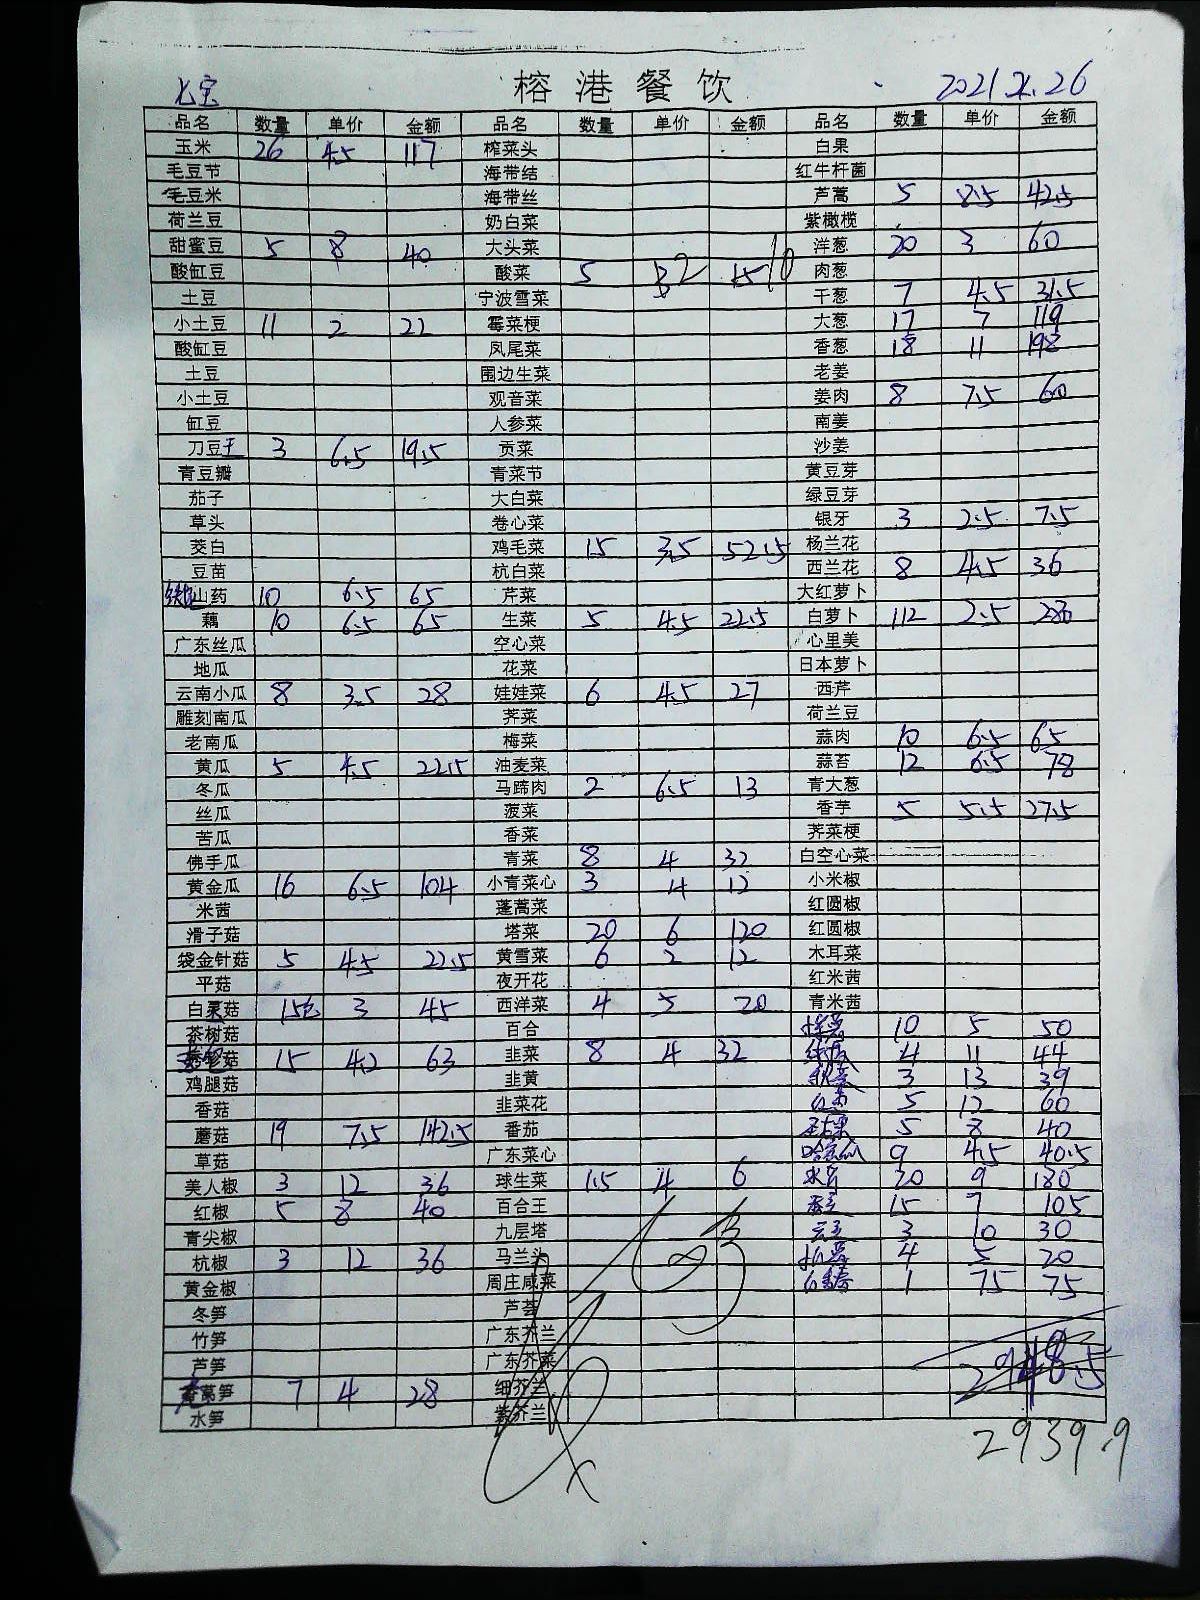 七宝 榕港餐饮 2021.2.26
品名 数量 单价 金额 品名 数量 单价 金额 品名 数量 单价 金额
玉米 26 4.5 117 榨菜头 白果
毛豆节 海带结 红牛杆菌
毛豆米 海带丝 芦蒿 5 8.5 42.5
荷兰豆 奶白菜 紫橄榄
甜蜜豆 5 8 40 大头菜 洋葱 20 3 60
酸缸豆 酸菜 5 2 10 肉葱
土豆 宁波雪菜 干葱 7 4.5 31.5
小土豆 11 2 22 霉菜梗 大葱 17 7 119
酸缸豆 凤尾菜 香葱 18 11 198
土豆 围边生菜 老姜
小土豆 观音菜 姜肉 8 7.5 60
缸豆 人参菜 南姜
刀豆王 3 6.5 19.5 贡菜 沙姜
青豆瓣 青菜节 黄豆芽
茄子 大白菜 绿豆芽
草头 卷心菜 银牙 3 2.5 7.5
茭白 鸡毛菜 15 3.5 52.5 杨兰花
豆苗 杭白菜 西兰花 8 4.5 36
铁棍山药 10 6.5 65 芹菜 大红萝卜
藕 10 6.5 65 生菜 5 4.5 22.5 白萝卜 112 2.5 280
广东丝瓜 空心菜 心里美
地瓜 花菜 日本萝卜
云南小瓜 8 3.5 28 娃娃菜 6 4.5 27 西芹
雕刻南瓜 荠菜 荷兰豆
老南瓜 梅菜 蒜肉 10 6.5 65
黄瓜 5 4.5 22.5 油麦菜 蒜苔 12 6.5 78
冬瓜 马蹄肉 2 6.5 13 青大葱
丝瓜 菠菜 香芋 5 5.5 27.5
苦瓜 香菜 荠菜梗
佛手瓜 青菜 8 4 32 白空心菜
黄金瓜 16 6.5 104 小青菜心 3 4 12 小米椒
米茜 蓬蒿菜 红圆椒
滑子菇 塔菜 20 6 120 红圆椒
袋金针菇 5 4.5 22.5 黄雪菜 6 2 12 木耳菜
平菇 夜开花 红米茜
白灵菇 15包 3 45 西洋菜 4 5 20 青米茜
茶树菇 百合 10 5 50
菇 15 4.2 63 韭菜 8 4 32 4 11 44
鸡腿菇 韭黄 3 13 39
香菇 韭菜花 5 12 60
蘑菇 19 7.5 142.5 番茄 5 8 40
草菇 广东菜心 哈密瓜 9 4.5 40.5
美人椒 3 12 36 球生菜 1.5 4 6 20 9 180
红椒 5 8 40 百合王 15 7 105
青尖椒 九层塔 3 10 30
杭椒 3 12 36 马兰头 4 5 20
黄金椒 周庄咸菜 1 75 75
冬笋 芦荟
竹笋 广东芥兰
芦笋 广东芥菜
莴笋 7 4 28 细芥兰
水笋 紫芥兰
2939.9